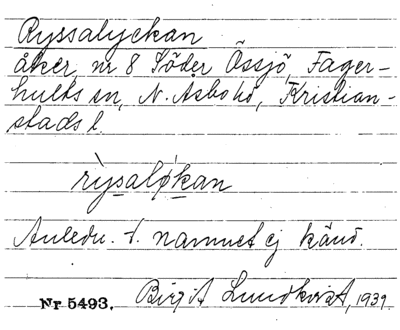 Ryssalyckan
åker, nr 8 Söder Össjö, Fager-
hults sn, N. Åsbo hd, Kristian-
stads l.
rỳsaløkan
Anledn. t. namnet ej känd.
Nr 5493. Birgit Lundkvist, 1939.